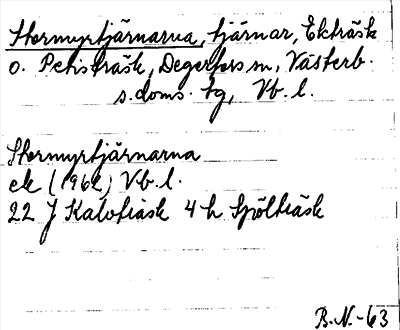 Stormyrtjärnarna, tjärnar, Ekträsk
o. Petisträsk, Degerfors sn, Västerb.
s. doms. tg, Vb. l.
Stormyrtjärnarna
ek (1962) Vb. l.
22 J Kalvträsk 4 h Spölträsk
B.N.-63